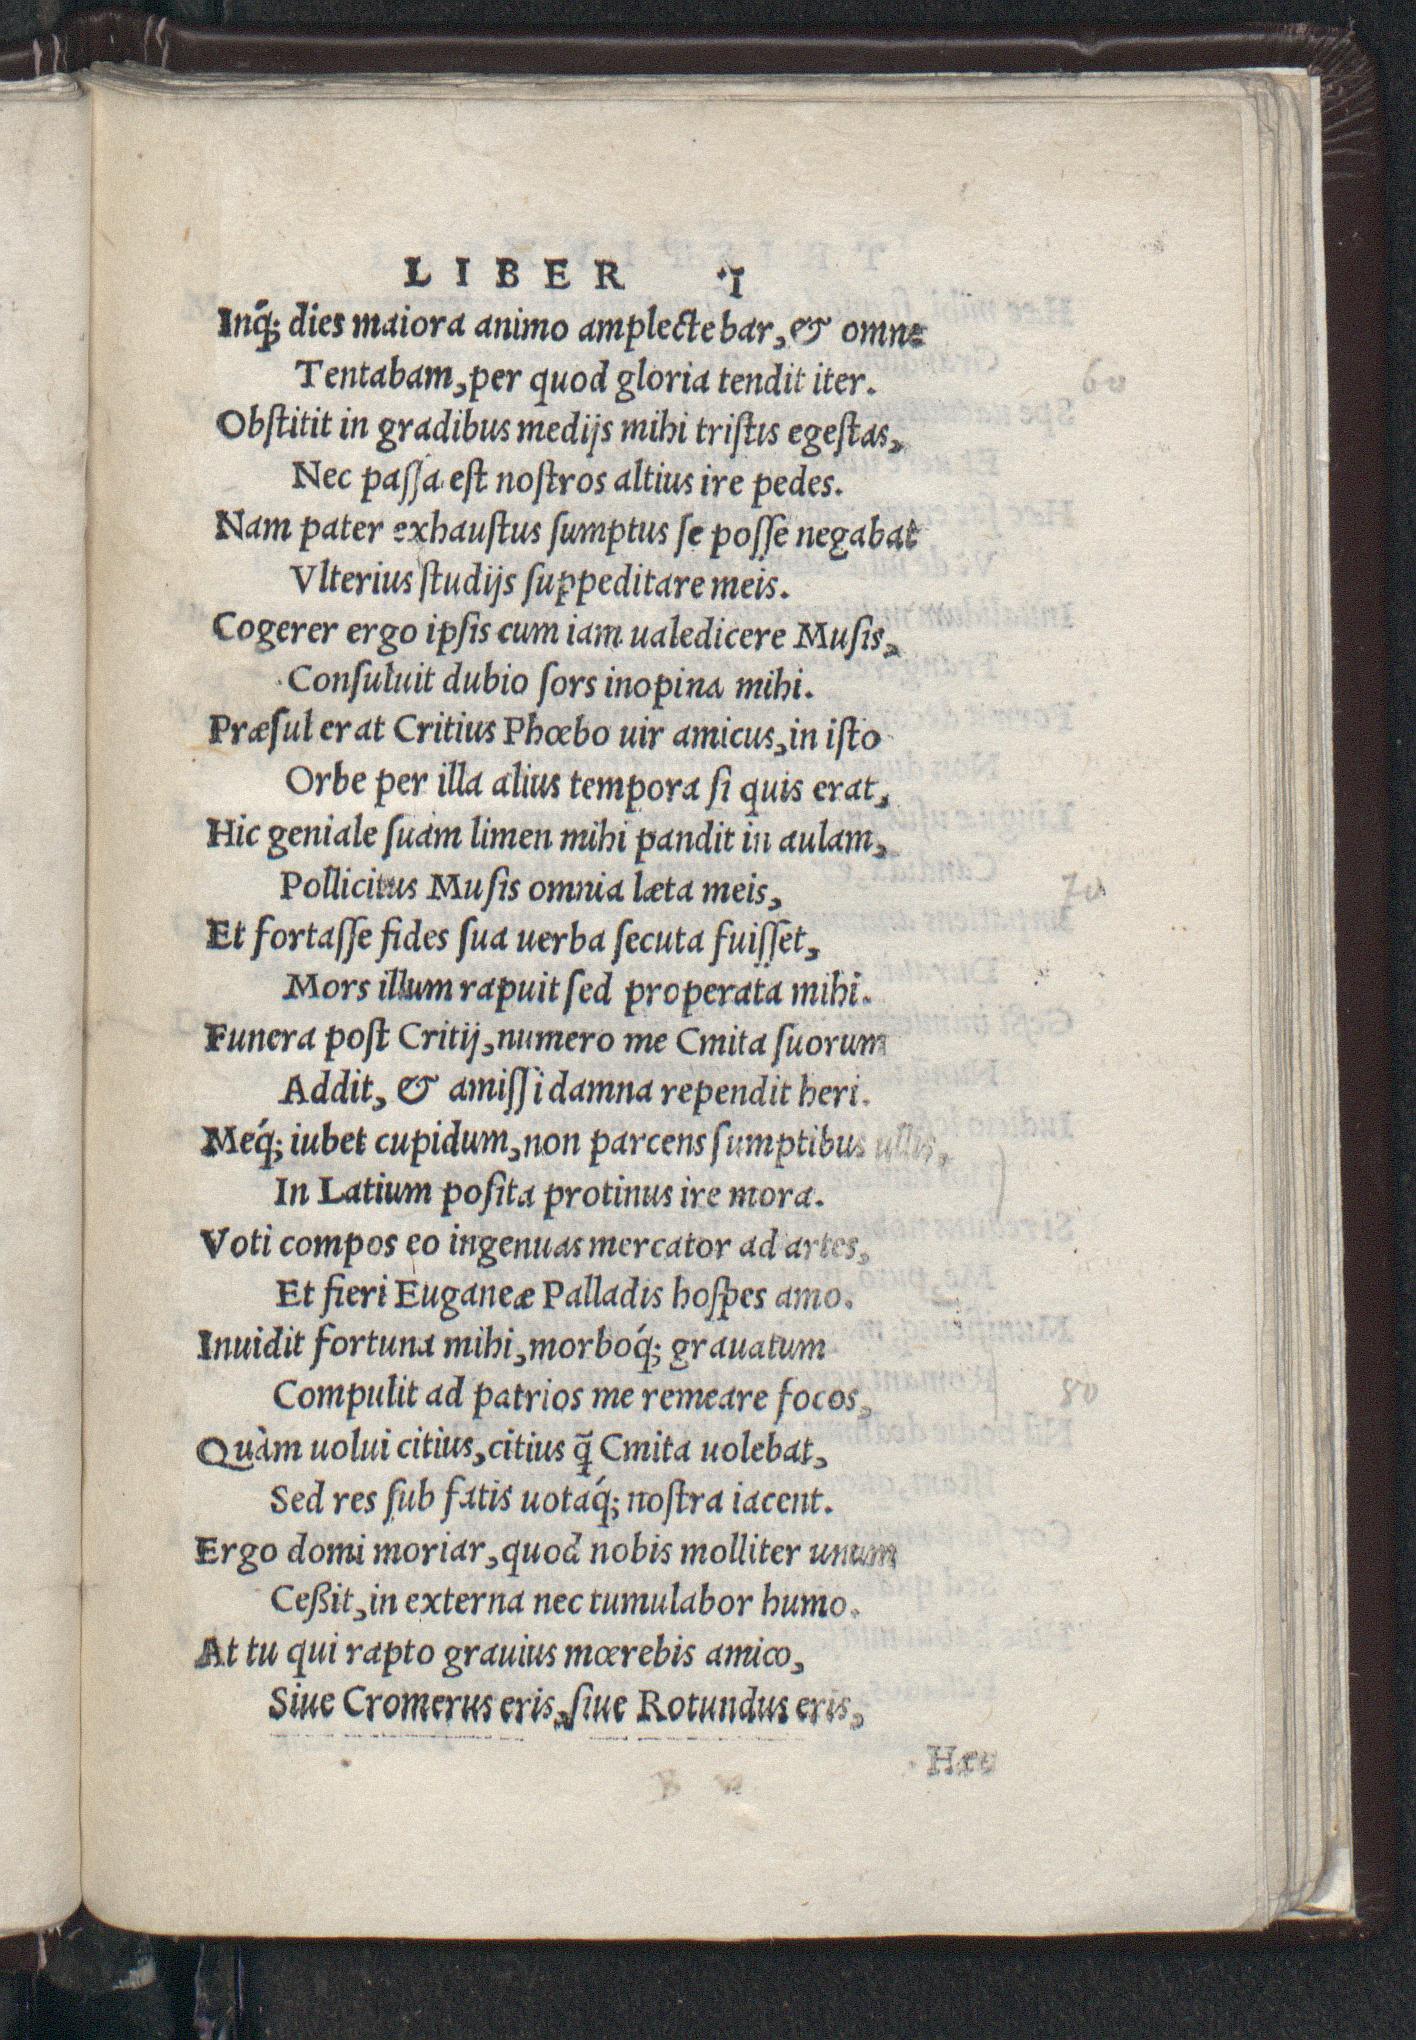 LIBER I
Inq́; dies maiora animo amplectebar, & omne
60
Tentabam, per quod gloria tendit iter.
Obſtitit in gradibus medijs mihi triſtis egeſtas,
Nec paſſa eſt noſtros altius ire pedes.
Nam pater exhauſtus ſumptus ſe poſſe negabat
Vlterius ſtudijs ſuppeditare meis.
Cogerer ergo ipſis cum iam ualedicere Muſis,
Conſuluit dubio ſors inopina mihi.
Præſul erat Critius Phœbo uir amicus, in iſto
Orbe per illa alius tempora ſi quis erat,
Hic geniale ſuam limen mihi pandit in aulam,
Pollicitus Muſis omnia læta meis,
70
Et fortaſſe fides ſua uerba ſecuta fuiſſet,
Mors illum rapuit ſed properata mihi.
Funera poſt Critij, numero me Cmita ſuorum
Addit, & amiſſi damna rependit heri.
Meq́; iubet cupidum, non parcens ſumptibus ullis,
In Latium poſita protinus ire mora.
Voti compos eo ingenuas mercator ad artes,
Et fieri Euganeæ Palladis hoſpes amo.
Inuidit fortuna mihi, morboq́; grauatum
Compulit ad patrios me remeare focos,
80
Quàm uolui citius, citius q̃ Cmita uolebat,
Sed res ſub fatis uotaq́; noſtra iacent.
Ergo domi moriar, quod nobis molliter unum
Ceßit, in externa nec tumulabor humo.
At tu qui rapto grauius mœrebis amico,
Siue Cromerus eris, ſiue Rotundus eris,